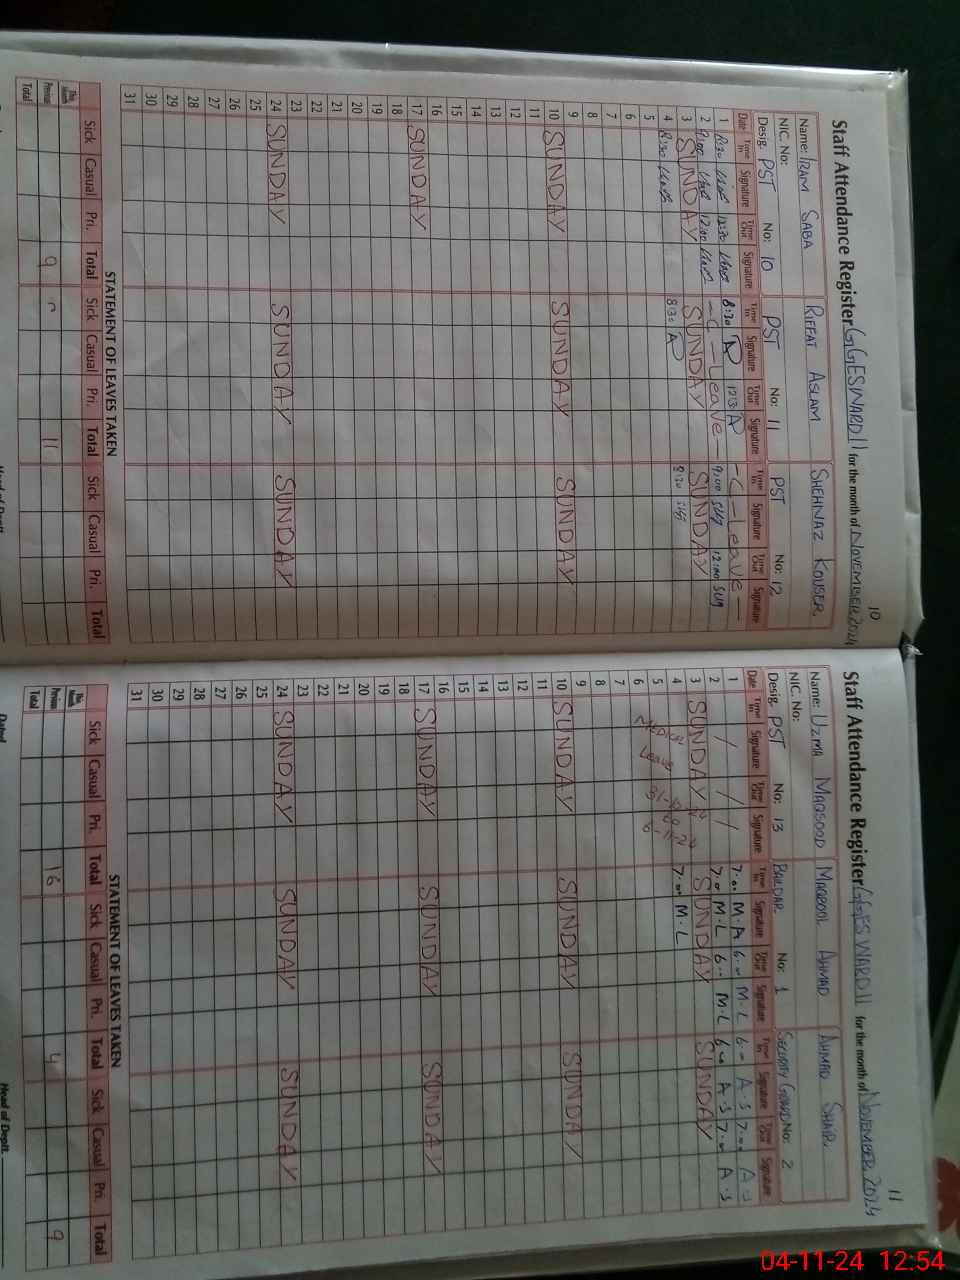 10
Staff Attendance Register GGES WARD 11 for the month of NOVEMBER 2024
Name: IRAM SABA RIFFAT ASLAM SHEHNAZ KOUSER
NIC. No:
Desig. PST No: 10 PST No: 11 PST No: 12
Date Time In Signature Time Out Signature Time In Signature Time Out Signature Time In Signature Time Out Signature
1 8:30 12:30 8:30 - C - Leave -
2 9:00 12:00 - C - Leave - 9:00 12:00
3 SUNDAY SUNDAY SUNDAY
4 8:30 8:30 8:30
5
6
7
8
9
10 SUNDAY SUNDAY SUNDAY
11
12
13
14
15
16
17 SUNDAY
18
19
20
21
22
23
24 SUNDAY SUNDAY SUNDAY
25
26
27
28
29
30
31
STATEMENT OF LEAVES TAKEN
Sick Casual Pri. Total Sick Casual Pri. Total Sick Casual Pri. Total
This Month
Previous 9 11
Total
11
Staff Attendance Register GGES WARD 11 for the month of NOVEMBER 2024
Name: UZMA MAQSOOD MAQBOOL AHMAD AHMAD SHAIR
NIC. No:
Desig. PST No: 13 No: 1 SECURITY GUARD No: 2
Date Time In Signature Time Out Signature Time In Signature Time Out Signature Time In Signature Time Out Signature
1 / / 7.00 M.A 6.00 M.L 6.00 A.S 7.00 A.S
2 / / 7.00 M.L 6.00 M.L 6.00 A.S 7.00 A.S
3 SUNDAY SUNDAY SUNDAY
4 7.00 M.L
5
6
Medical
Leave
31-10-24
to
6-11-24
7
8
9
10 SUNDAY SUNDAY SUNDAY
11
12
13
14
15
16
17 SUNDAY SUNDAY SUNDAY
18
19
20
21
22
23
24 SUNDAY SUNDAY SUNDAY
25
26
27
28
29
30
31
STATEMENT OF LEAVES TAKEN
Sick Casual Pri. Total Sick Casual Pri. Total Sick Casual Pri. Total
This Month
Previous 16 4 9
Total
Dated
Head of Deptt.
04-11-24 12:54